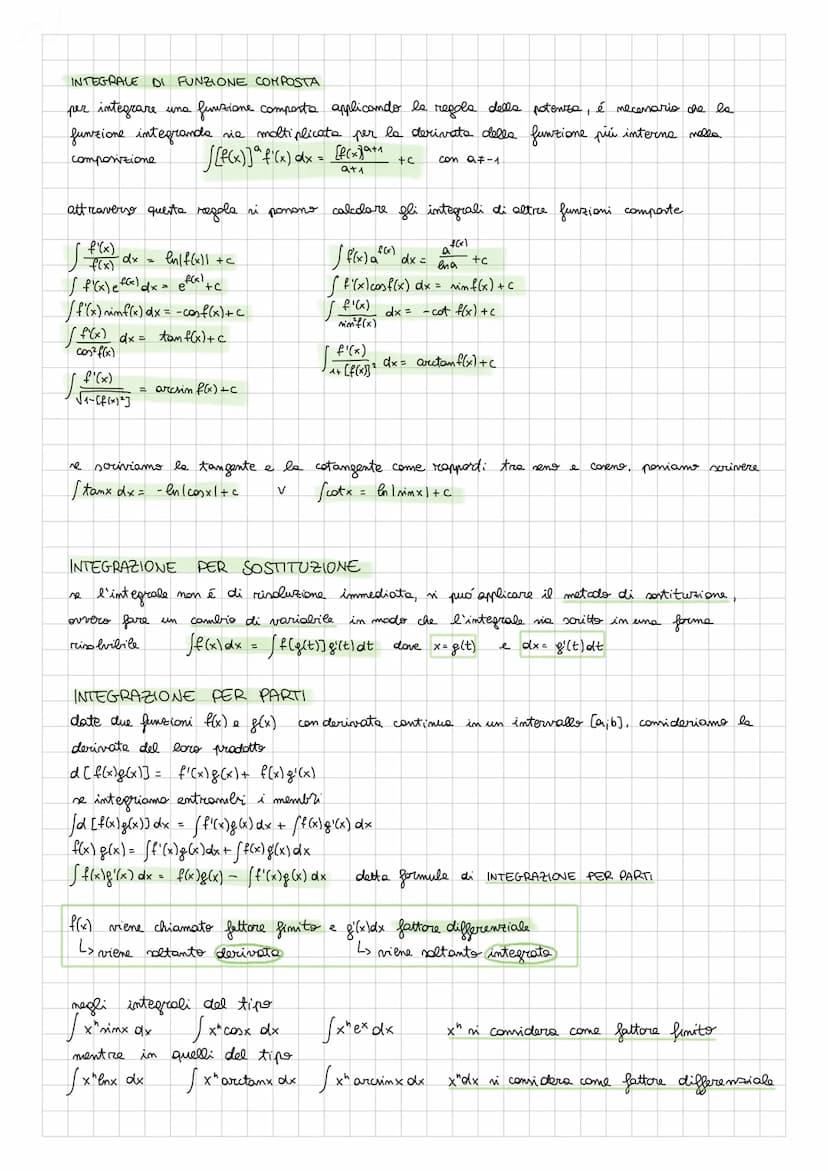 INTEGRALE DI FUNZIONE COMPOSTA
per integrare una funzione composta applicando la regola della potenza, é necessario che la
funzione integranda sia moltiplicata per la derivata della funzione più interna nella
composizione ∫[f(x)]^a f'(x) dx = [f(x)]^(a+1)/(a+1) + c con a≠-1
attraverso questa regola si possono calcolare gli integrali di altre funzioni composte
∫ f'(x)/f(x) dx = ln|f(x)| + c ∫ f'(x) a^f(x) dx = a^f(x)/ln a + c
∫ f'(x) e^f(x) dx = e^f(x) + c ∫ f'(x) cosf(x) dx = sinf(x) + c
∫ f'(x) sinf(x) dx = -cosf(x) + c ∫ f'(x)/sin²f(x) dx = -cot f(x) + c
∫ f'(x)/cos²f(x) dx = tanf(x) + c ∫ f'(x)/1+[f(x)]² dx = arctanf(x) + c
∫ f'(x)/√1-[f(x)²] = arcsin f(x) + c
se scriviamo la tangente e la cotangente come rapporti tra seno e coseno, possiamo scrivere
∫tanx dx = -ln|cosx| + c v ∫cotx = ln|sinx| + c
INTEGRAZIONE PER SOSTITUZIONE
se l'integrale non É di risoluzione immediata, si può applicare il metodo di sostituzione,
ovvero fare un cambio di variabile in modo che l'integrale sia scritto in una forma
risolvibile ∫f(x)dx = ∫f[g(t)] g'(t)dt dove x=g(t) e dx= g'(t)dt
INTEGRAZIONE PER PARTI
date due funzioni f(x) e g(x) con derivata continua in un intervallo [a;b], consideriamo la
derivata del loro prodotto
d[f(x)g(x)] = f'(x)g(x) + f(x)g'(x)
se integriamo entrambi i membri
∫d[f(x)g(x)] dx = ∫f'(x)g(x) dx + ∫f(x)g'(x) dx
f(x) g(x) = ∫f'(x)g(x)dx + ∫f(x)g(x)dx
∫f(x)g'(x) dx = f(x)g(x) - ∫f'(x)g(x) dx detta formula di INTEGRAZIONE PER PARTI
f(x) viene chiamato fattore finito e g'(x)dx fattore differenziale
↳ viene soltanto derivato ↳ viene soltanto integrato
negli integrali del tipo
∫xⁿsinx dx ∫xⁿcosx dx ∫xⁿeˣ dx xⁿ si considera come fattore finito
mentre in quelli del tipo
∫xⁿlnx dx ∫xⁿarctanx dx ∫xⁿarcsinx dx xⁿdx si considera come fattore differenziale